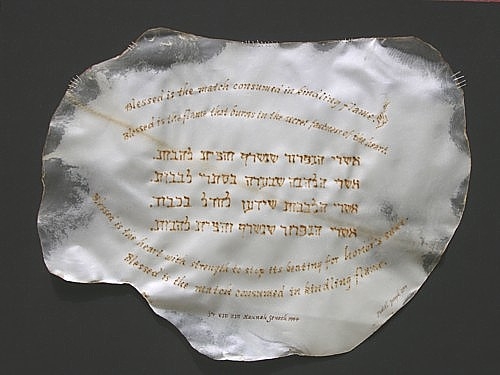 Blessed is the match consumed in kindling flame.
Blessed is the flame that burns in the secret fastness of the heart.
אשרי הגפרור שנשרף והצית להבות.
אשרי הלהבה שבערה בסתרי לבבות.
אשרי הלבבות שידעו לחדל בכבוד.
אשרי הגפרור שנשרף והצית להבות.
Blessed is the heart with strength to stop its beating for honor's sake.
Blessed is the match consumed in kindling flame.
Hannah Senesh 1944